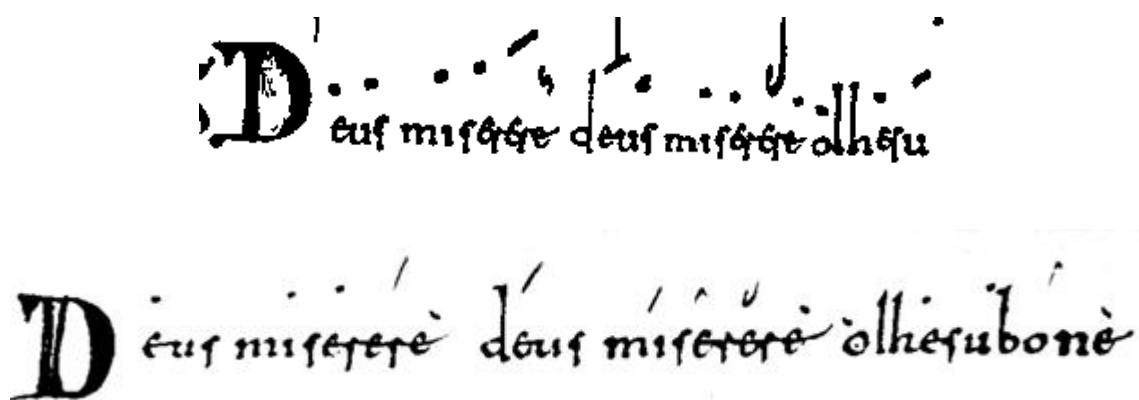 Deus miserere deus miserere o Ihesu
Deus miserere deus miserere o Ihesu bone